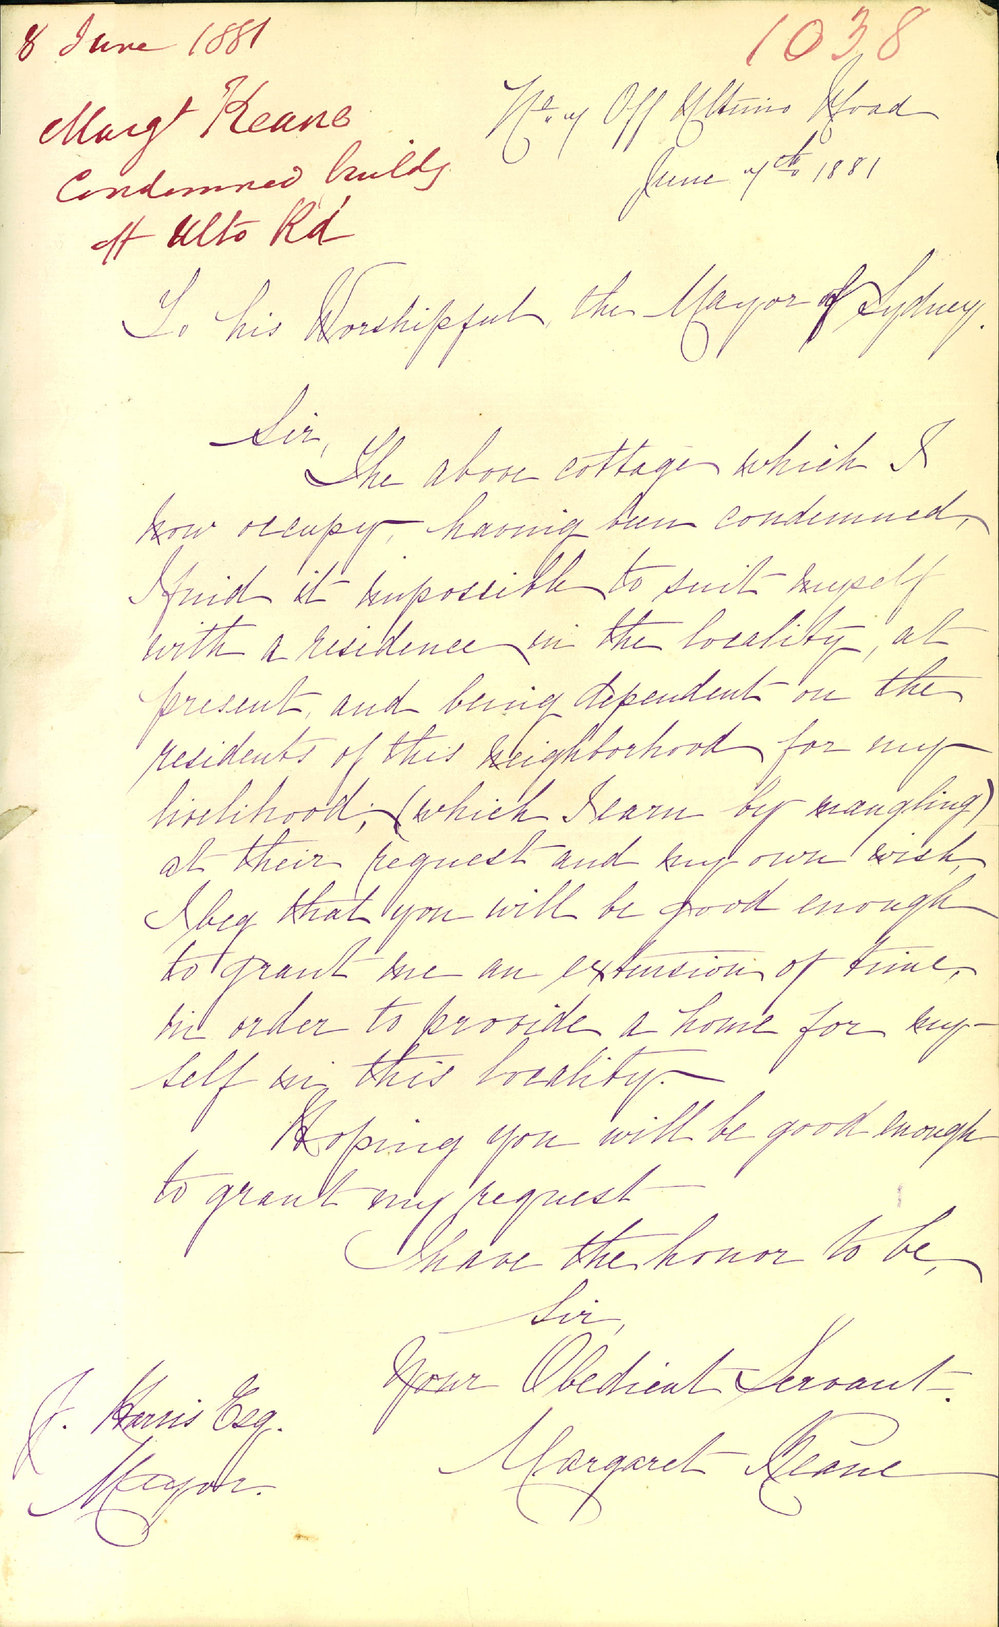 8 June 1881
1038
Margt Keane
Condemned builds
off Ulto Rd
No. 7 Off Ultimo Road
June 7th 1881
To his Worshipful, the Mayor of Sydney.
Sir,
The above cottage which I
now occupy, having been condemned,
I find it impossible to suit myself
with a residence in the locality, at
present, and being dependent on the
residents of this neighborhood for my
livelihood; (which I earn by mangling)
at their request and my own wish,
I beg that you will be good enough
to grant me an extension of time,
in order to provide a home for my-
self in this locality.
Hoping you will be good enough
to grant my request
I have the honor to be,
Sir,
Your Obedient Servant.
Margaret Keane
J. Harris Esq.
Mayor.